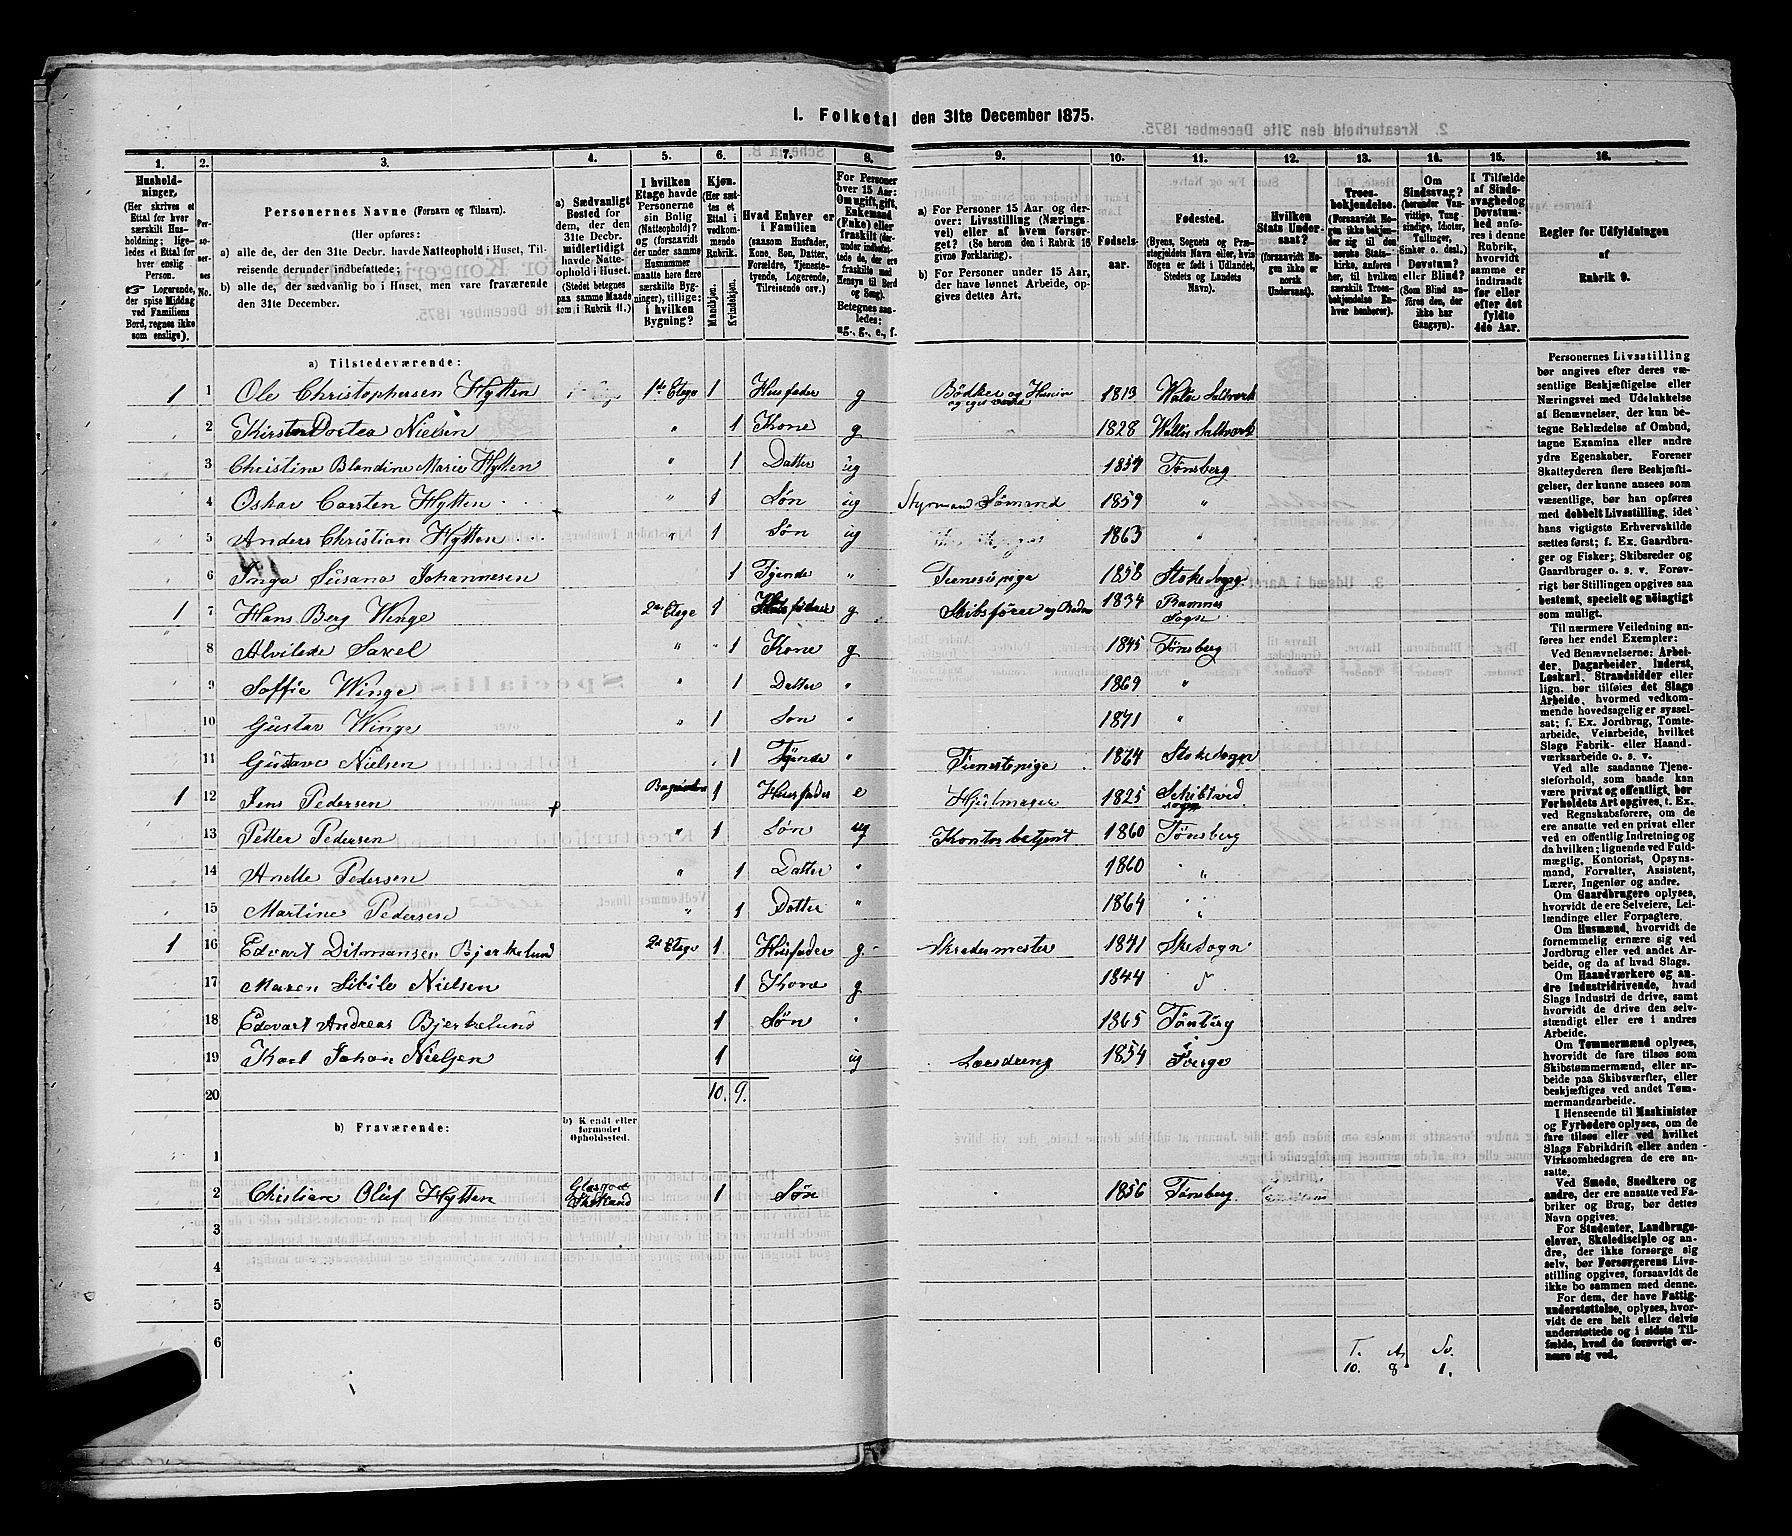 I. Folketal den 31te December 1875.
1. 2. 3. 4. 5. 6. 7. 8. 9. 10. 11. 12. 13. 14. 15. 16.
Husholdninger. (Her skrives et Ettal for hver særskilt Husholdning; ligeledes et Ettal for hver enslig Person.
☞ Logerende, der spise Middag ved Familiens Bord, regnes ikke som enslige).
Personernes No.
Personernes Navne (Fornavn og Tilnavn).
(Her opføres:
a) alle de, der den 31te Decbr. havde Natteophold i Huset, Tilreisende derunder indbefattede;
b) alle de, der sædvanlig bo i Huset, men vare fraværende den 31te December.
a) Sædvanligt Bosted for dem, der den 31te Decbr. midlertidigt havde Natteophold i Huset. (Stedet betegnes paa samme Maade som i Rubrik 11.)
I hvilken Etage havde Personerne sin Bolig (Natteophold)? og (forsaavidt der under samme Husnummer maatte høre flere særskilte Bygninger), tillige: i hvilken Bygning?
Kjøn. (Her sættes et Ettal i vedkommende Rubrik.
Mandkjøn.
Kvindekjøn.
Hvad Enhver er i Familien (saasom Husfader, Kone, Søn, Datter, Forældre, Tjenestetyende, Logerende, Tilreisende osv.)
For Personer over 15 Aar: Om ugift, gift, Enkemand (Enke) eller fraskilt
Betegnes saaledes: ug., g., e., f.
a) For Personer 15 Aar og derover: Livsstilling (Næringsvei) eller af hvem forsørget? (Se herom den i Rubrik 16 givne Forklaring).
b) For Personer under 15 Aar, der have lønnet Arbeide, opgives dettes Art.
Fødselsaar.
Fødested. (Byens, Sognets og Præstegjeldets Navn eller, hvis Nogen er født i Udlandet, Stedets og Landets Navn).
Hvilken Stats Undersaat? (forsaavidt Nogen ikke er norsk Undersaat).
Troesbekjendelse. (Forsaavidt Nogen ikke bekjender sig til den norske Statskirke, anføres her, til hvilken særskilt Troesbekjendelse Enhver henhører).
Om Sindssvag? (herunder Vanvittige, Tungsindige, Idioter, Tullinger, Sinker o. desl.) Døvstum? eller Blind? (Som Blind anføres den, der ikke har Gangsyn).
I Tilfælde af Sindssvaghed og Døvstumhed anføres i denne Rubrik, hvorvidt samme er indtraadt før eller efter det fyldte 4de Aar.
Regler for Udfyldningen af Rubrik 9.
a) Tilstedeværende:
1 1 Ole Christophersen Hytten 1ste Etage 1 Husfader g Bødker og 1813 Walø Saltverk
2 Kirsten Dortea Nielsen " 1 Kone g 1828 Walløs Saltverk
3 Christine Blandine Marie Hytten " 1 Datter ug 1857 Tønsberg
4 Oskar Carsten Hytten " 1 Søn ug Styrmand Sømand 1859 "
5 Anders Christian Hytten " 1 Søn ug 1863 "
6 Inga Susana Johannesen 1 Tjende " Tienestpige 1858 Stokesogn
1 7 Hans Berg Winge 2den Etage 1 Husfader g Skibsfører og 1834 Ramnes Sogn
8 Alvilde Saxel " 1 Kone g 1845 Tønsberg
9 Soffie Winge " 1 Datter " 1869 "
10 Gustav Winge " 1 Son " 1871 "
11 Gustava Nielsen 1 Tjende " Tienestepige 1864 Stokesogn
1 12 Jens Pedersen 1 Husfader e Hjulmager 1825 Skibtved sogn
13 Petter Pedersen " 1 Søn ug Kontorbetjent 1860 Tønsberg
14 Anette Pedersen " 1 Datter " 1860 "
15 Martine Pedersen " 1 Datter " 1864 "
1 16 Edvart Ditmansen Bjerkelund 2den Etage 1 Husfader g. Skredermester 1841
17 Maren Sibile Nielsen 1 Kone g 1844
18 Edvart Andreas Bjerkelund 1 Søn " 1865 Tønsberg
19 Karl Johan Nielsen 1 ug Læredreng 1854
20 10. 9.
b) Fraværende:
b) Kjendt eller formodet Opholdssted.
1
2 Christian Oluf Hytten Skotland 1 Søn 1856 Tønsberg.
3
4
5
6
T. A. Sv.
10. 8 1.
Personernes Livsstilling bør angives efter deres væsentlige Beskjæftigelse eller Næringsvei med Udelukkelse af Benævnelser, der kun betegne Beklædelse af Ombud, tagne Examina eller andre ydre Egenskaber. Forener Skatteyderen flere Beskjæftigelser, der kunne ansees som væsentlige, bør han opføres med dobbelt Livsstilling, idet hans vigtigste Erhvervskilde sættes først; f. Ex. Gaardbruger og Fisker; Skibsreder og Gaardbruger o. s. v. Forøvrigt bør Stillingen opgives saa bestemt, specielt og nøiagtigt som muligt.
Til nærmere Veiledning anføres her endel Exempler:
Ved Benævnelserne: Arbeider, Dagarbeider, Inderst, Løskarl, Strandsidder eller lign. bør tilføies det Slags Arbeide, hvormed vedkommende hovedsagelig er sysselsat; f. Ex. Jordbrug, Tomtearbeide, Veiarbeide, hvilket Slags Fabrik- eller Haandværksarbeide o. s. v.
Ved alle saadanne Tjenesteforhold, som baade kan være privat og offentligt, bør Forholdets Art opgives, t. Ex. ved Regnskabsførere, om de ere ansatte ved en privat eller ved en offentlig Indretning og da hvilken; lignende ved Fuldmægtig, Kontorist, Opsynsmand, Forvalter, Assistent, Lærer, Ingeniør og andre.
Om Gaardbrugere oplyses, hvorvidt de ere Selveiere, Leilændinge eller Forpagtere.
Om Husmænd, hvorvidt de fornemmelig ernære sig ved Jordbrug eller ved andet Arbeide, og da af hvad Slags.
Om Haandværkere og andre Industridrivende, hvad Slags Industri de drive, samt hvorvidt de drive den selvstændigt eller ere i andres Arbeide.
Om Tømmermænd oplyses, hvorvidt de fare tilsøs som Skibstømmermænd, eller arbeide paa Skibsværfter, eller beskjæftiges ved andet Tømmermandsarbeide.
I Henseende til Maskinister og Fyrbødere oplyses, om de fare tilsøs eller ved hvilket Slags Fabrikdrift eller anden Virksomhedsgren de ere ansatte.
Ved Smede, Snedkere og andre, der ere ansatte ved Fabriker og Brug, bør dettes Navn opgives.
For Studenter, Landbrugselever, Skoledisciple og andre, der ikke forsørge sig selv, bør Forsørgerens Livsstilling opgives, forsaavidt de ikke bo sammen med denne.
For dem, der have Fattigunderstøttelse, oplyses, hvorvidt de ere helt eller delvis understøttede og i sidste Tilfælde, hvad de forøvrigt ernære sig ved.